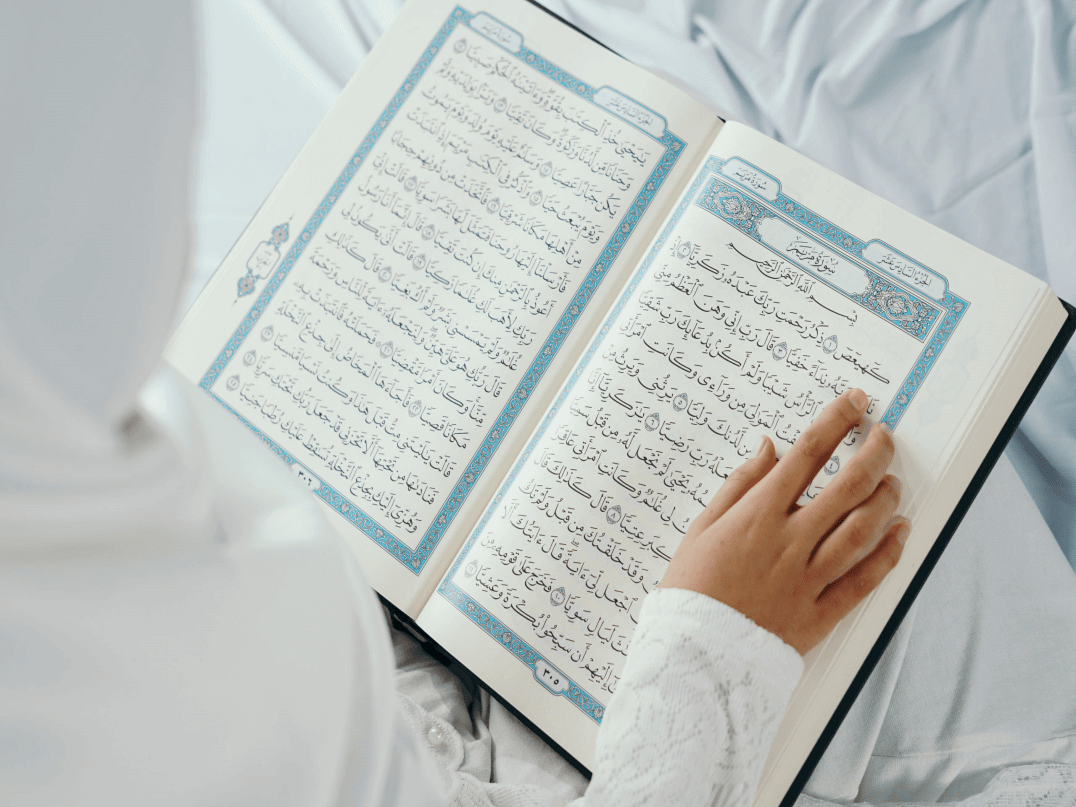 سُورَةُ مَرْيَمَ
الجُزْءُ السَّادِسَ عَشَرَ
سُورَةُ مَرْيَمَ
بِسْمِ اللَّهِ الرَّحْمَٰنِ الرَّحِيمِ
كٓهيعٓصٓ ١ ذِكْرُ رَحْمَتِ رَبِّكَ عَبْدَهُۥ زَكَرِيَّآ ٢ إِذْ
نِدَآءً خَفِيًّا ٣ قَالَ رَبِّ إِنِّى وَهَنَ ٱلْعَظْمُ مِنِّى
ٱلرَّأْسُ شَيْبًا وَلَمْ أَكُنۢ بِدُعَآئِكَ رَبِّ شَقِيًّا
٤ ٱلْمَوَٰلِىَ مِن وَرَآءِى وَكَانَتِ ٱمْرَأَتِى
مِن لَّدُنكَ وَلِيًّا ٥ يَرِثُنِى وَيَرِثُ مِنْ
رَبِّ رَضِيًّا ٦ يَٰزَكَرِيَّآ إِنَّا
يَحْيَىٰ لَمْ نَجْعَل لَّهُۥ مِن قَبْلُ
لِى غُلَٰمٌ وَكَانَتِ ٱمْرَأَتِى عَاقِرًا
عِتِيًّا ٨ قَالَ كَذَٰلِكَ قَالَ
وَقَدْ خَلَقْتُكَ مِن قَبْلُ وَلَمْ تَكُ
ٱجْعَل لِّىٓ ءَايَةً قَالَ ءَايَتُكَ أَلَّا
لَيَالٍ سَوِيًّا ١٠ فَخَرَجَ عَلَىٰ قَوْمِهِۦ مِنَ
إِلَيْهِمْ أَن سَبِّحُوا۟ بُكْرَةً وَعَشِيًّا ١١
٣٠٥
الجُزْءُ السَّادِسَ عَشَرَ
سُورَةُ مَرْيَمَ
يَٰيَحْيَىٰ خُذِ ٱلْكِتَٰبَ بِقُوَّةٍ وَءَاتَيْنَٰهُ ٱلْحُكْمَ صَبِيًّا ١٢
وَحَنَانًا مِّن لَّدُنَّا وَزَكَوٰةً وَكَانَ تَقِيًّا ١٣ وَبَرًّۢا بِوَٰلِدَيْهِ وَلَمْ
يَكُن جَبَّارًا عَصِيًّا ١٤ وَسَلَٰمٌ عَلَيْهِ يَوْمَ وُلِدَ وَيَوْمَ يَمُوتُ
وَيَوْمَ يُبْعَثُ حَيًّا ١٥ وَٱذْكُرْ فِى ٱلْكِتَٰبِ مَرْيَمَ إِذِ ٱنتَبَذَتْ
مِنْ أَهْلِهَا مَكَانًا شَرْقِيًّا ١٦ فَٱتَّخَذَتْ مِن دُونِهِمْ حِجَابًا
فَأَرْسَلْنَآ إِلَيْهَا رُوحَنَا فَتَمَثَّلَ لَهَا بَشَرًا سَوِيًّا ١٧ قَالَتْ إِنِّىٓ
أَعُوذُ بِٱلرَّحْمَٰنِ مِنكَ إِن كُنتَ تَقِيًّا ١٨ قَالَ إِنَّمَآ أَنَا۠ رَسُولُ
رَبِّكِ لِأَهَبَ لَكِ غُلَٰمًا زَكِيًّا ١٩ قَالَتْ أَنَّىٰ يَكُونُ لِى
غُلَٰمٌ وَلَمْ يَمْسَسْنِى بَشَرٌ وَلَمْ أَكُ بَغِيًّا ٢٠ قَالَ كَذَٰلِكِ
قَالَ رَبُّكِ هُوَ عَلَىَّ هَيِّنٌ وَلِنَجْعَلَهُۥٓ ءَايَةً لِّلنَّاسِ وَرَحْمَةً
مِّنَّا وَكَانَ أَمْرًا مَّقْضِيًّا ٢١ فَحَمَلَتْهُ فَٱنتَبَذَتْ بِهِۦ
مَكَانًا قَصِيًّا ٢٢ فَأَجَآءَهَا ٱلْمَخَاضُ إِلَىٰ جِذْعِ ٱلنَّخْلَةِ
قَالَتْ يَٰلَيْتَنِى مِتُّ قَبْلَ هَٰذَا وَكُنتُ نَسْيًا مَّنسِيًّا ٢٣
فَنَادَىٰهَا مِن تَحْتِهَآ أَلَّا تَحْزَنِى قَدْ جَعَلَ رَبُّكِ تَحْتَكِ سَرِيًّا ٢٤
وَهُزِّىٓ إِلَيْكِ بِجِذْعِ ٱلنَّخْلَةِ تُسَٰقِطْ عَلَيْكِ رُطَبًا جَنِيًّا ٢٥
٣٠٦